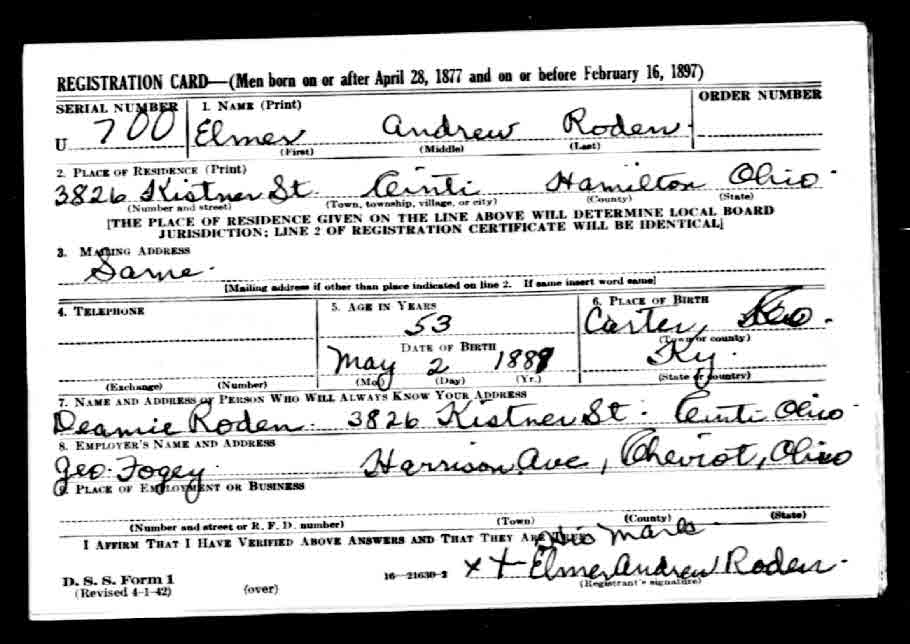 REGISTRATION CARD—(Men born on or after April 28, 1877 and on or before February 16, 1897)
SERIAL NUMBER 1. NAME (Print) ORDER NUMBER
U 700 Elmer Andrew Roden.
(First) (Middle) (Last)
2. PLACE OF RESIDENCE (Print)
3826 Kistner St. Cinti Hamilton Ohio.
(Number and street) (Town, township, village, or city) (County) (State)
[THE PLACE OF RESIDENCE GIVEN ON THE LINE ABOVE WILL DETERMINE LOCAL BOARD
JURISDICTION; LINE 2 OF REGISTRATION CERTIFICATE WILL BE IDENTICAL]
3. MAILING ADDRESS
Same.
[Mailing address if other than place indicated on line 2. If same insert word same]
4. TELEPHONE 5. AGE IN YEARS 6. PLACE OF BIRTH
53 Carter,
DATE OF BIRTH (Town or county)
May 2 Ky.
(Exchange) (Number) (Mo.) (Day) (Yr.) (State or country)
7. NAME AND ADDRESS OF PERSON WHO WILL ALWAYS KNOW YOUR ADDRESS
Deamie Roden. 3826 Kistner St. Cinti Ohio.
8. EMPLOYER'S NAME AND ADDRESS
Geo. Fogey. Harrison Ave, Cheviot, Ohio
9. PLACE OF EMPLOYMENT OR BUSINESS
(Number and street or R. F. D. number) (Town) (County) (State)
I AFFIRM THAT I HAVE VERIFIED ABOVE ANSWERS AND THAT THEY ARE TRUE. His Mark
D. S. S. Form 1 16—21630-2 x + Elmer Andrew Roden.
(Revised 4-1-42) (over) (Registrant's signature)